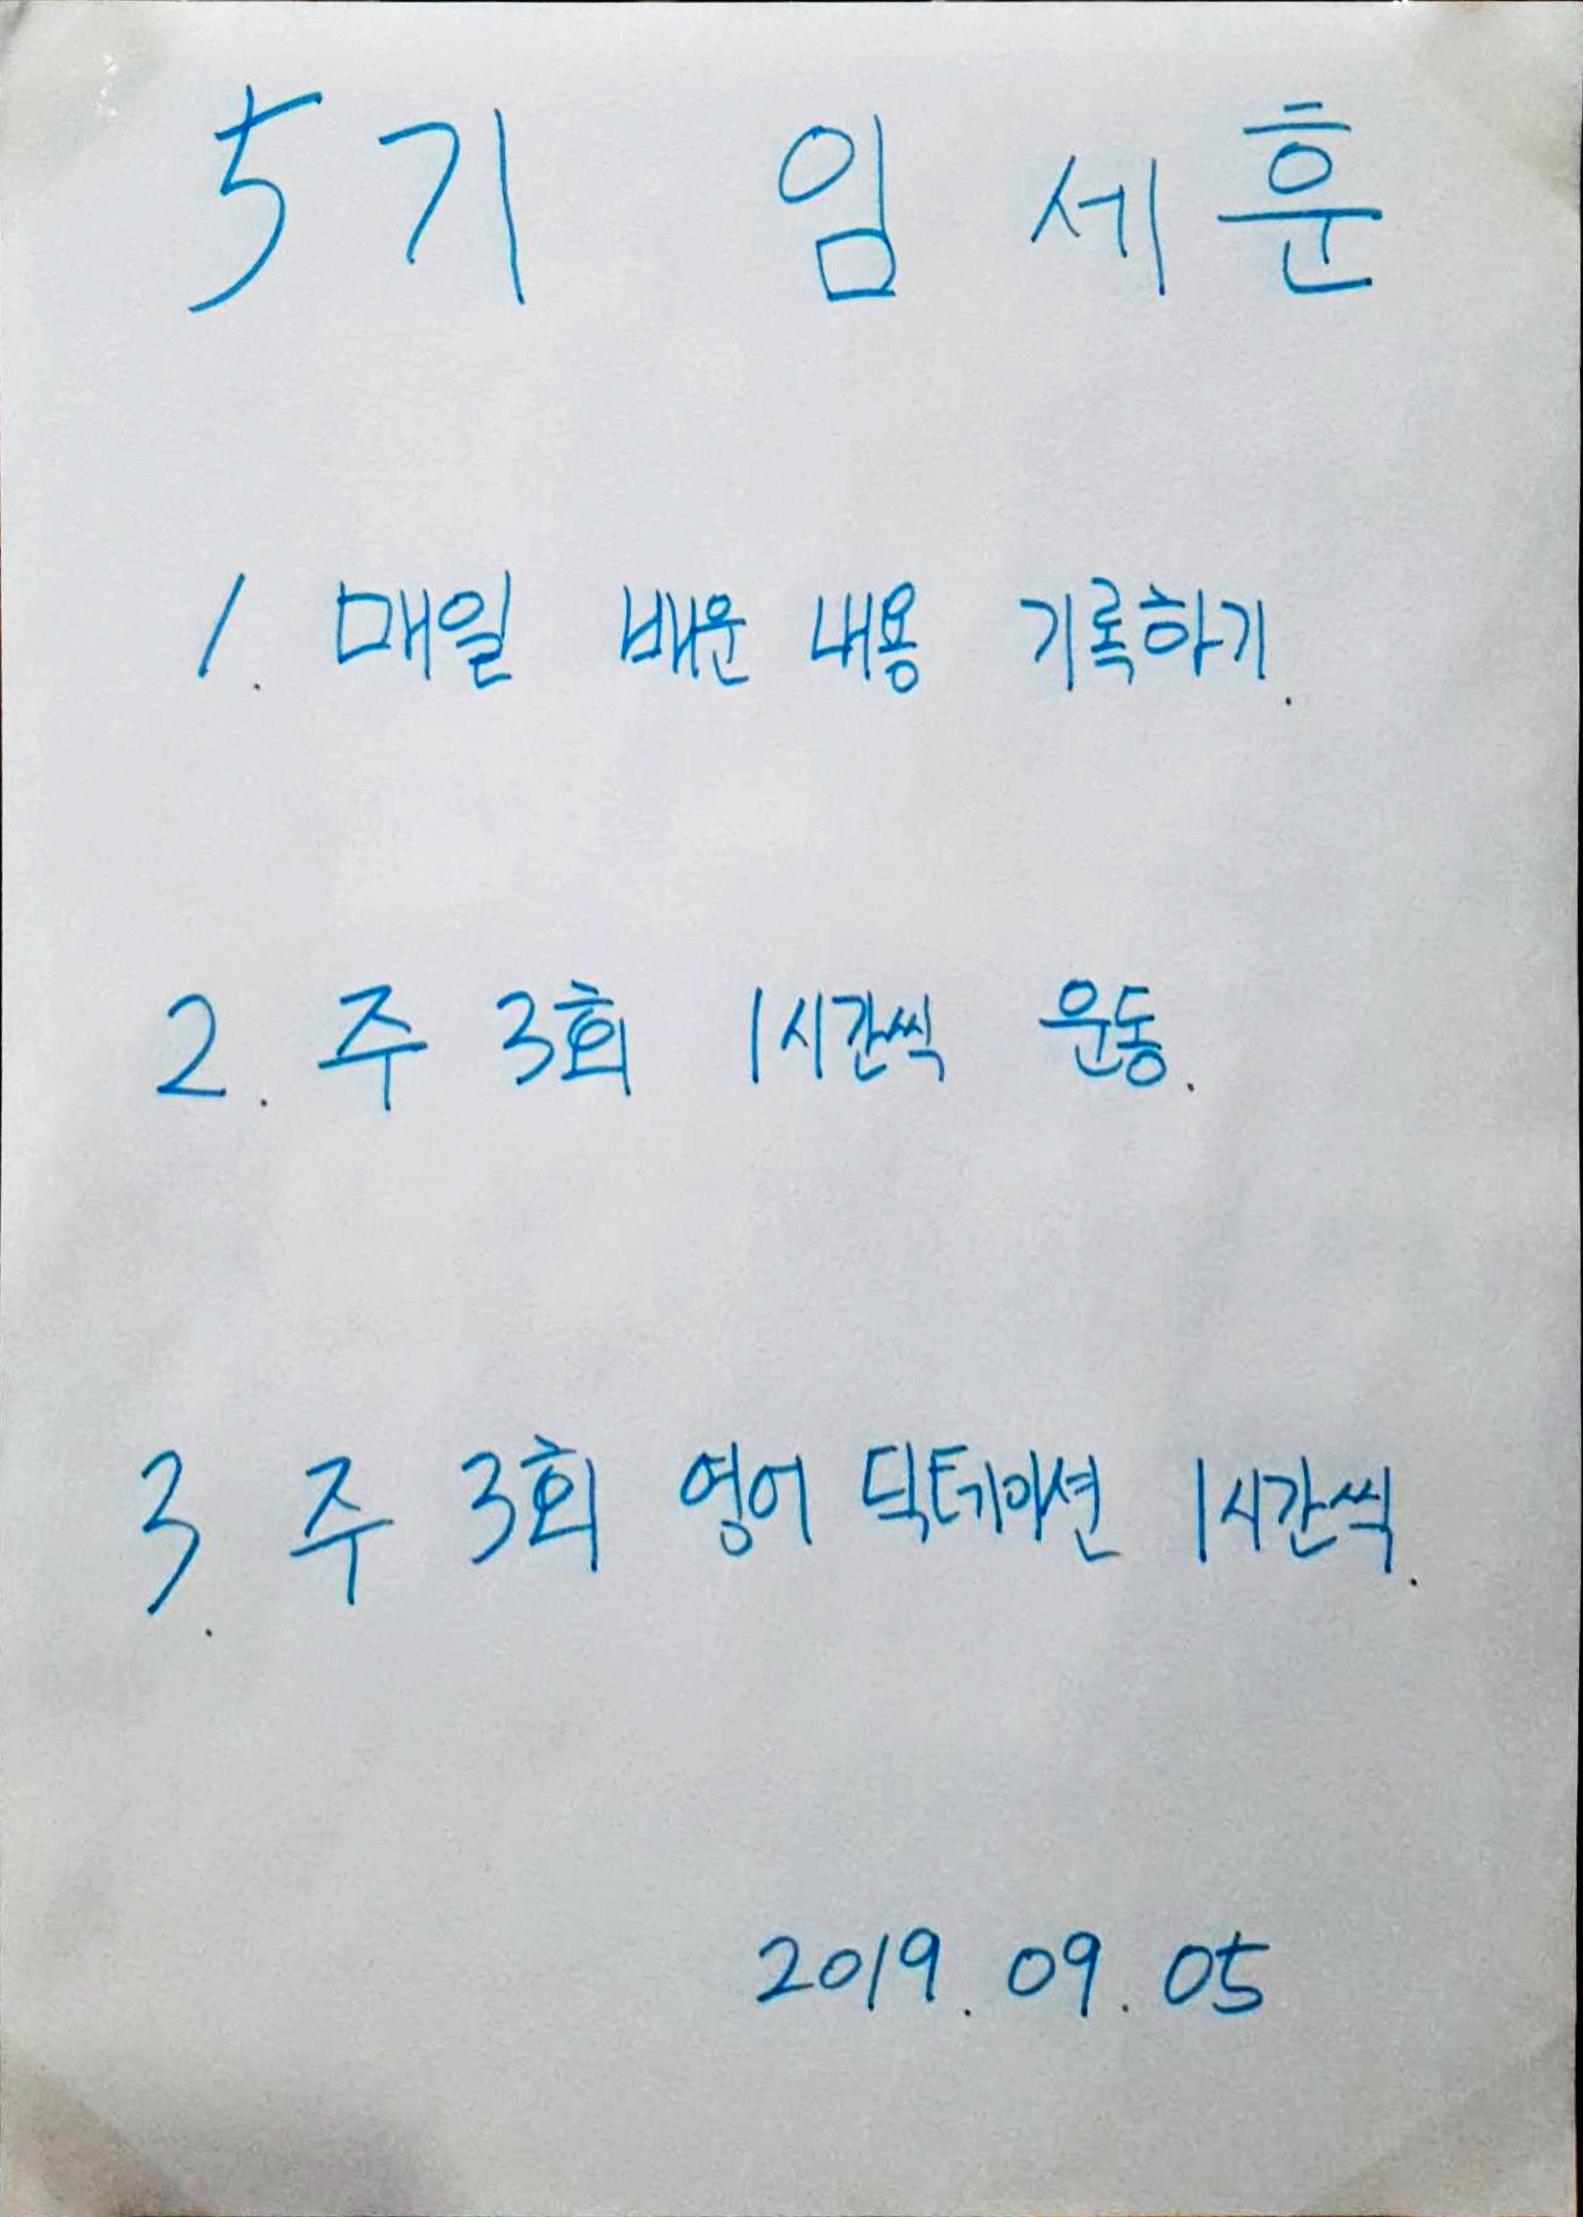 5기 임세훈
1. 매일 배운 내용 기록하기.
2. 주 3회 1시간씩 운동.
3. 주 3회 영어 딕테이션 1시간씩.
2019. 09. 05